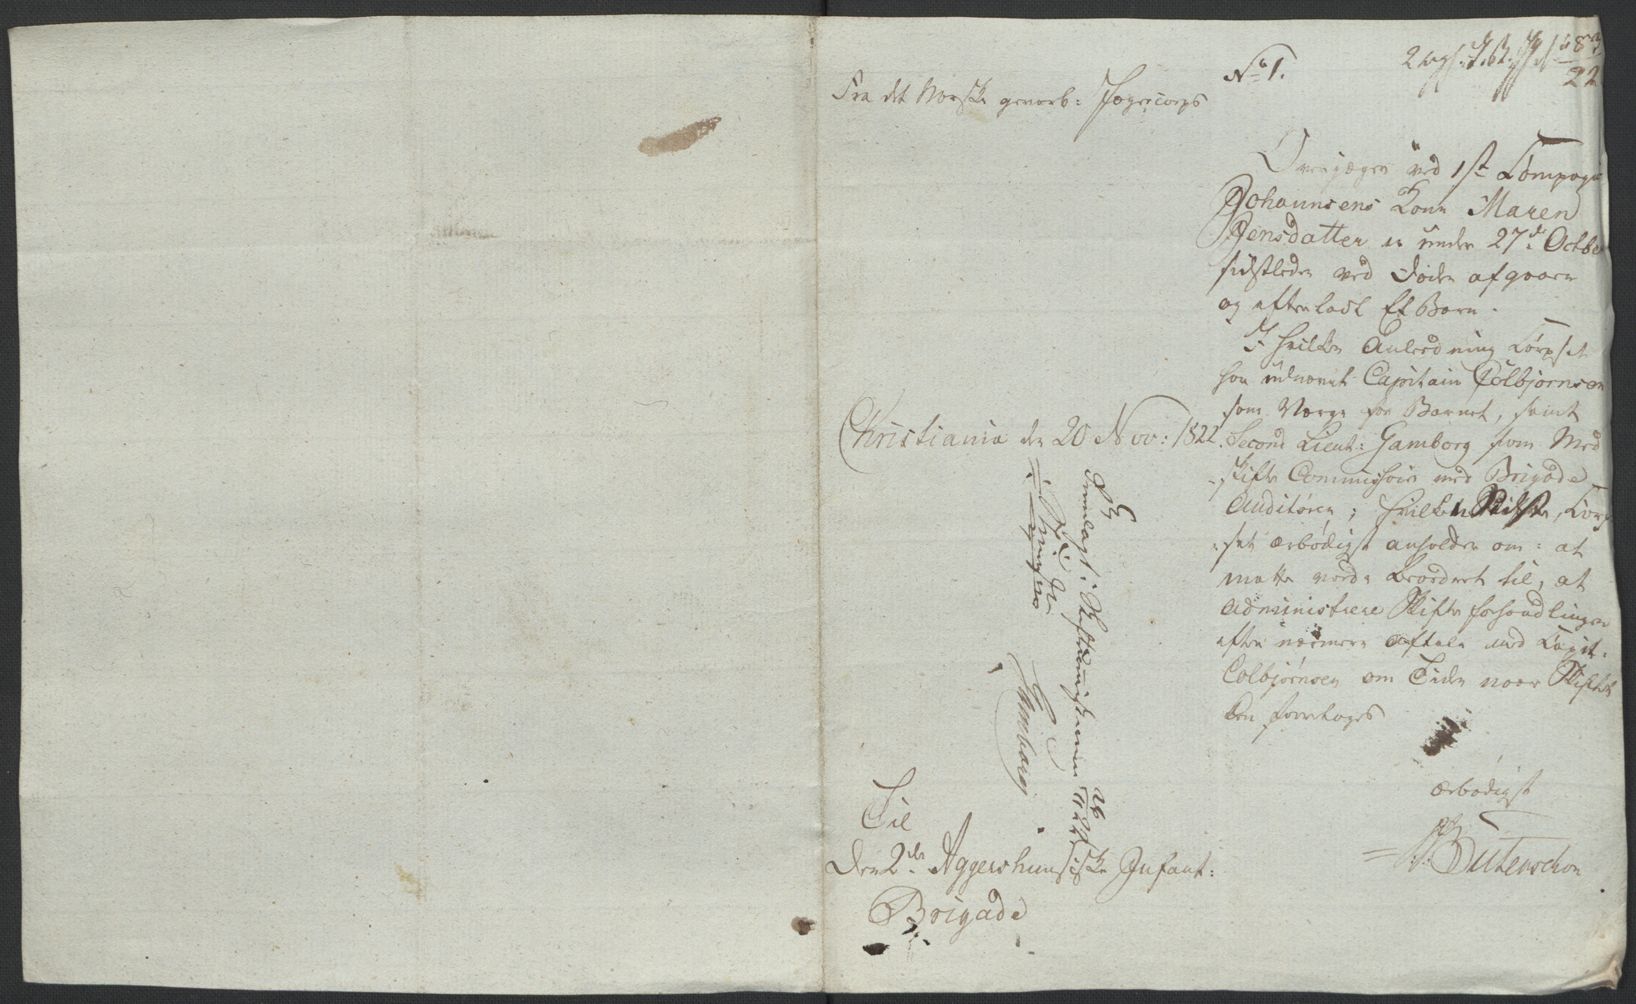 No 1.
Fra det Norske gevorb: Jægercorps
Overjæger ved 1ste Compagni
Johannsens Kone Maren
Jensdatter er under 27de Octbr
sidstleden ved Døden afgaaen
og efterladt Et Barn.
I hvilken Anledning Corpset
har udnævnt Capitain Colbjørnsen
som Værge for Barnet, samt
Second Lieut: Gamborg som Med
skifte Commissair med Brigade
Auditøren; hvilken Sidste, Corp-
set ærbødigst anholder om: at
maatte vorde beordret til, at
administrere Skifteforhandlingen
efter nærmere Aftale med Capit.
Colbjørnsen om Tiden naar Skiftet
kan foretages
Christiania den 20 Nov: 1822.
ærbødigst
Butenschøn
Til
Den 2den Aggershuusiske Infant:
Brigade
Fremlagt i Skiftesamlingen
Gamborg